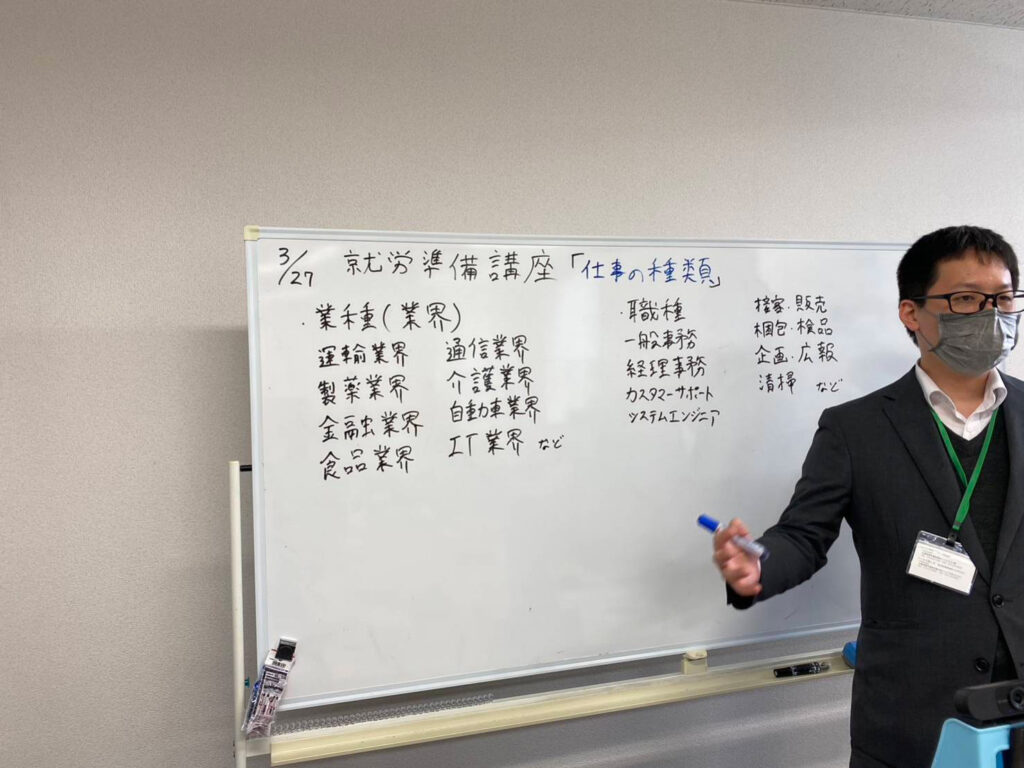 3/27 就労準備講座「仕事の種類」
・業種(業界)
運輸業界
製薬業界
金融業界
食品業界
通信業界
介護業界
自動車業界
IT業界 など
・職種
一般事務
経理事務
カスタマーサポート
システムエンジニア
接客・販売
梱包・検品
企画・広報
清掃 など